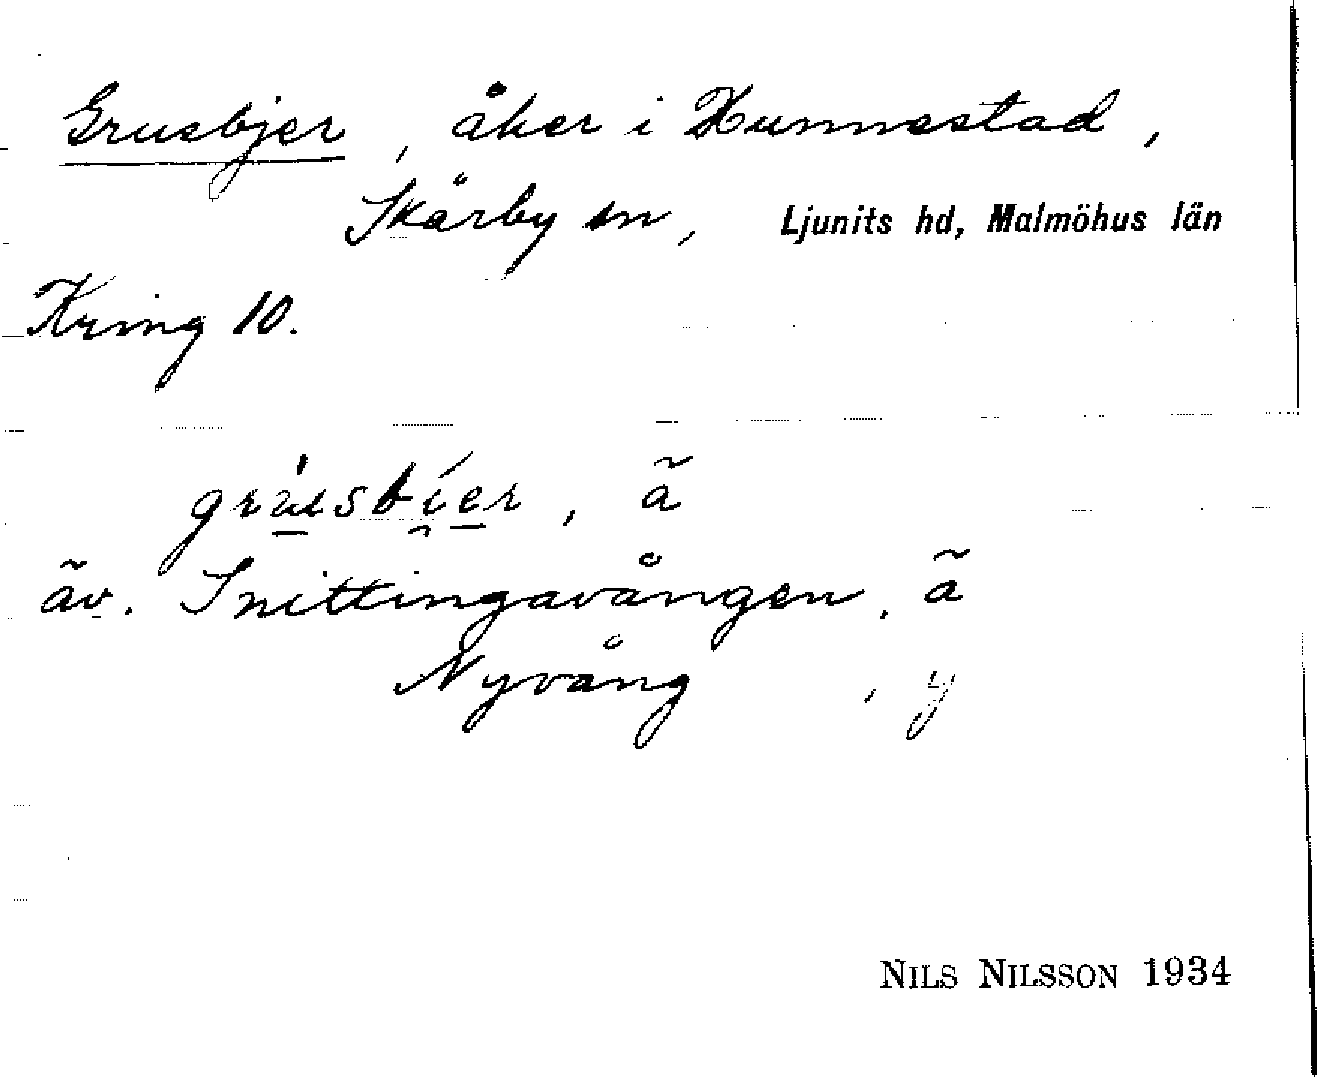 Grusbjer, åker i Hunnestad,
Skårby sn, Ljunits hd, Malmöhus län
Kring 10.
grúusbi̯er, ã
äv. Snittingavången, ã
Nyvång, y
NILS NILSSON 1934